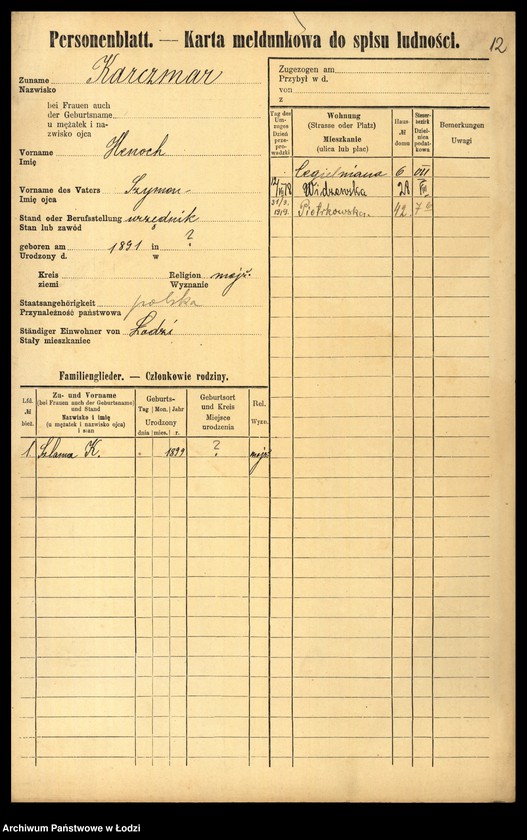 Personenblatt. — Karta meldunkowa do spisu ludności.
12
Zuname Karczmar
Nazwisko
bei Frauen auch
der Geburtsname
u mężatek i na-
zwisko ojca
Vorname Henoch
Imię
Vorname des Vaters Szymon
Imię ojca
Stand oder Berufsstellung urzędnik
Stan lub zawód
geboren am 1891 in ?
Urodzony d. w
Kreis Religion mojż.
ziemi Wyznanie
Staatsangehörigkeit polska
Przynależność państwowa
Ständiger Einwohner von Łodzi
Stały mieszkaniec
Zugezogen am
Przybył w d.
von
z
Tag des Um-zuges Dzień prze-prowadzki
Wohnung
(Strasse oder Platz)
Mieszkanie
(ulica lub plac)
Haus-№ domu
Steuer-bezirk Dziel-nica podat-kowa
Bemerkungen
Uwagi
Cegielniana 6 VII
Widzewska 28
Piotrkowska 42 7
Familienglieder. — Członkowie rodziny.
Lfd. № bież.
Zu- und Vorname
(bei Frauen auch der Geburtsname)
und Stand
Nazwisko i imię
(u mężatek i nazwisko ojca)
i stan
Geburts-
Tag Mon. Jahr
Urodzony
dnia mies. r.
Geburtsort
und Kreis
Miejsce
urodzenia
Rel.
Wyzn.
1 Szlama K. 1899 ? mojż
Archiwum Państwowe w Łodzi